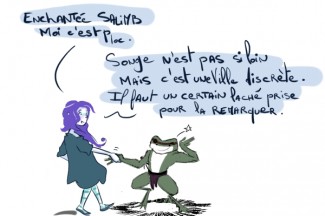 ENCHANTÉE SALIMB
MOI C'EST PLOC.
SONGE N'EST PAS SI LOIN
MAIS C'EST UNE VILLE DISCRÈTE.
IL FAUT UN CERTAIN LACHÉ PRISE
POUR LA REMARQUER.